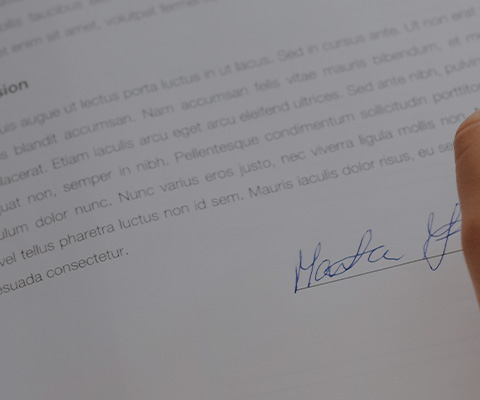 ollis faucibus
et enim sit amet, volutpat fermen
sion
uis augue ut lectus porta luctus in ut lacus. Sed in cursus ante. Ut non erat
s blandit accumsan. Nam accumsan felis vitae mauris bibendum, et m
lacerat. Etiam iaculis arcu eget arcu eleifend ultrices. Sed ante nibh, pulvin
uat non, semper in nibh. Pellentesque condimentum sollicitudin porttitor
ulum dolor nunc. Nunc varius eros justo, nec viverra ligula mollis non.
vel tellus pharetra luctus non id sem. Mauris iaculis dolor risus, eu se
esuada consectetur.